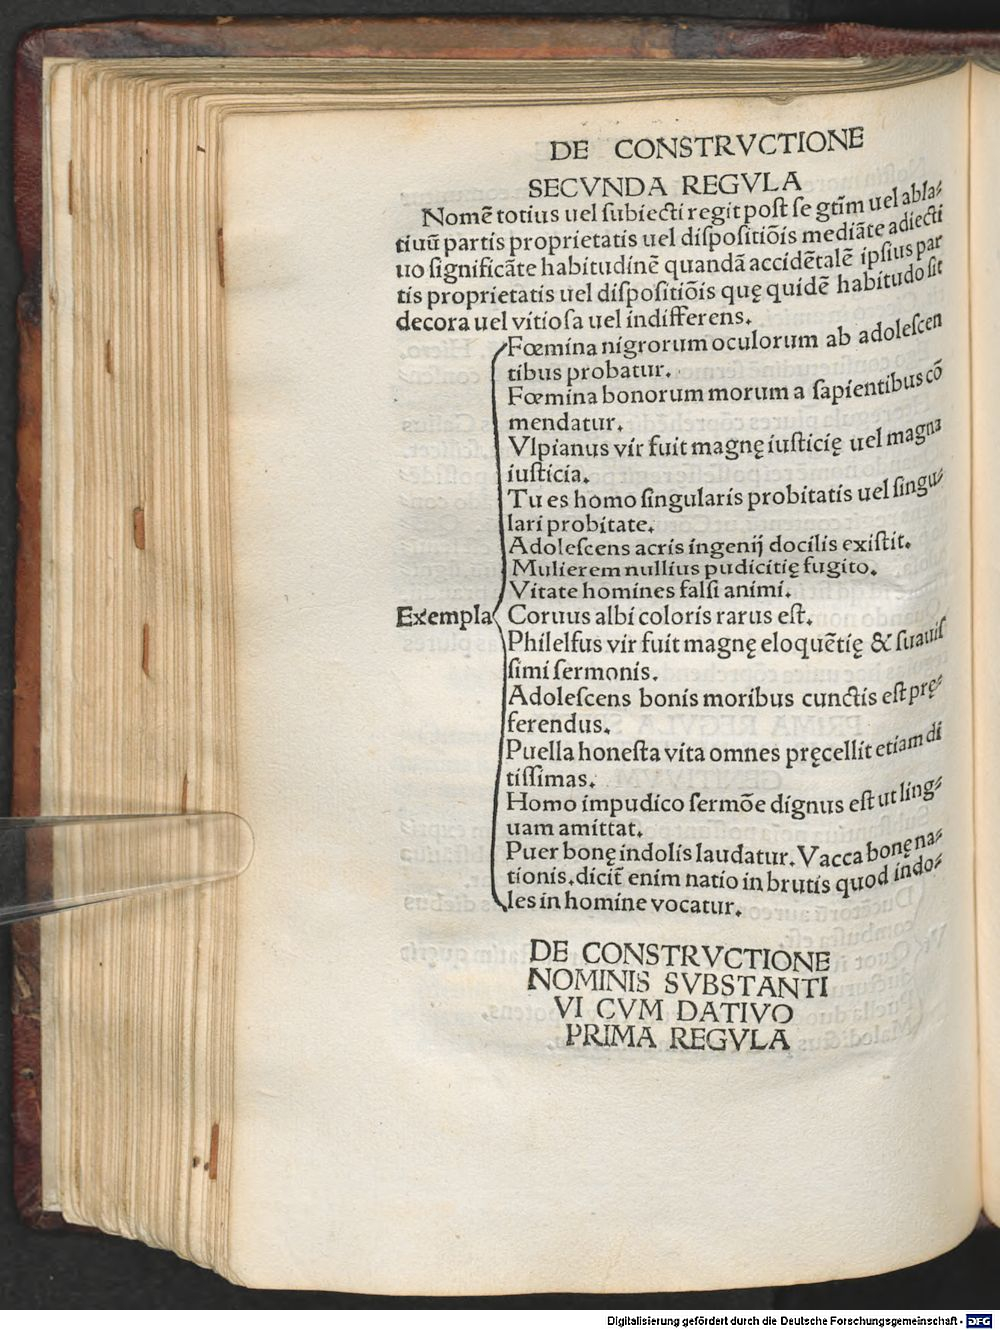 DE CONSTRVCTIONE
SECVNDA REGVLA
Nomẽ totius uel ſubiecti regit poſt ſe gtĩm uel abla⸗
tiuũ partis proprietatis uel diſpoſitiõis mediãte adiecti
uo ſignificãte habitudinẽ quandã accidẽtalẽ ipſius par
tis proprietatis uel diſpoſitiõis quę quidẽ habitudo ſit
decora uel vitioſa uel indifferens.
Fœmina nigrorum oculorum ab adoleſcen
tibus probatur.
Fœmina bonorum morum a ſapientibus cõ
mendatur.
Vlpianus vir fuit magnę iuſticię uel magna
iuſticia.
Tu es homo ſingularis probitatis uel ſingu⸗
lari probitate.
Adoleſcens acris ingenij docilis exiſtit.
Mulierem nullius pudicitię fugito.
Vitate homines falſi animi.
Exempla Coruus albi coloris rarus eſt.
Philelfus vir fuit magnę eloquẽtię & ſuauiſ
ſimi ſermonis.
Adoleſcens bonis moribus cunctis eſt prę⸗
ferendus.
Puella honeſta vita omnes pręcellit etiam di
tiſſimas.
Homo impudico ſermõe dignus eſt ut ling⸗
uam amittat.
Puer bonę indolis laudatur. Vacca bonę na⸗
tionis. dicit̃ enim natio in brutis quod indo⸗
les in homine vocatur.
DE CONSTRVCTIONE
NOMINIS SVBSTANTI
VI CVM DATIVO
PRIMA REGVLA
Digitalisierung gefördert durch die Deutsche Forschungsgemeinschaft - DFG